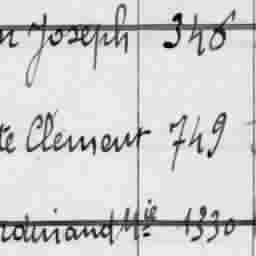 n Joseph 346
te Clément 749
rdinand Mie 1330